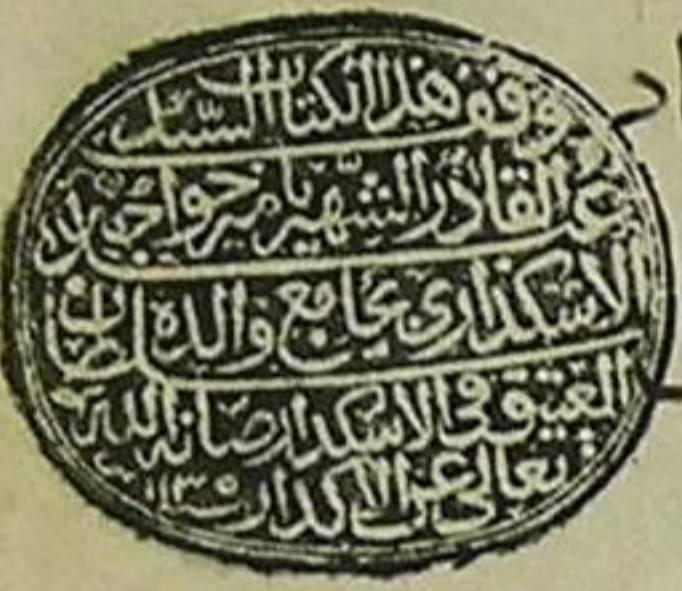 وقف هذا الكتاب السيد
عبد القادر الشهير بامير خواجه
الاسكداري بجامع والده سلطان
العتيق في الاسكدار صانه الله
تعالى عن الاكدار سنة ١١٣٥